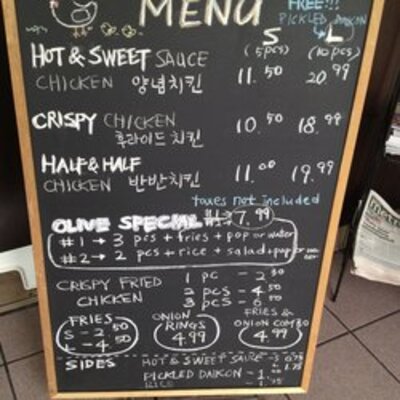 MENU
FREE!!!
PICKLED DAIKON
S L
(5pcs) (10pcs)
HOT & SWEET SAUCE
CHICKEN 양념치킨 11.50 20.99
CRISPY CHICKEN 10.50 18.99
후라이드치킨
HALF & HALF 11.00 19.99
CHICKEN 반반치킨
taxes not included
OLIVE SPECIAL 7.99
#1 → 3 pcs + fries + pop or water
#2 → 2 pcs + rice + salad + pop or
CRISPY FRIED 1 PC - 2.50
CHICKEN 2 PCS - 4.50
3 PCS - 6
FRIES
S - 2.50
L - 4.50
ONION
RINGS
4.99
FRIES &
ONION COMBO
4.99
SIDES HOT & SWEET SAUCE
PICKLED DAIKON - 1
RICE